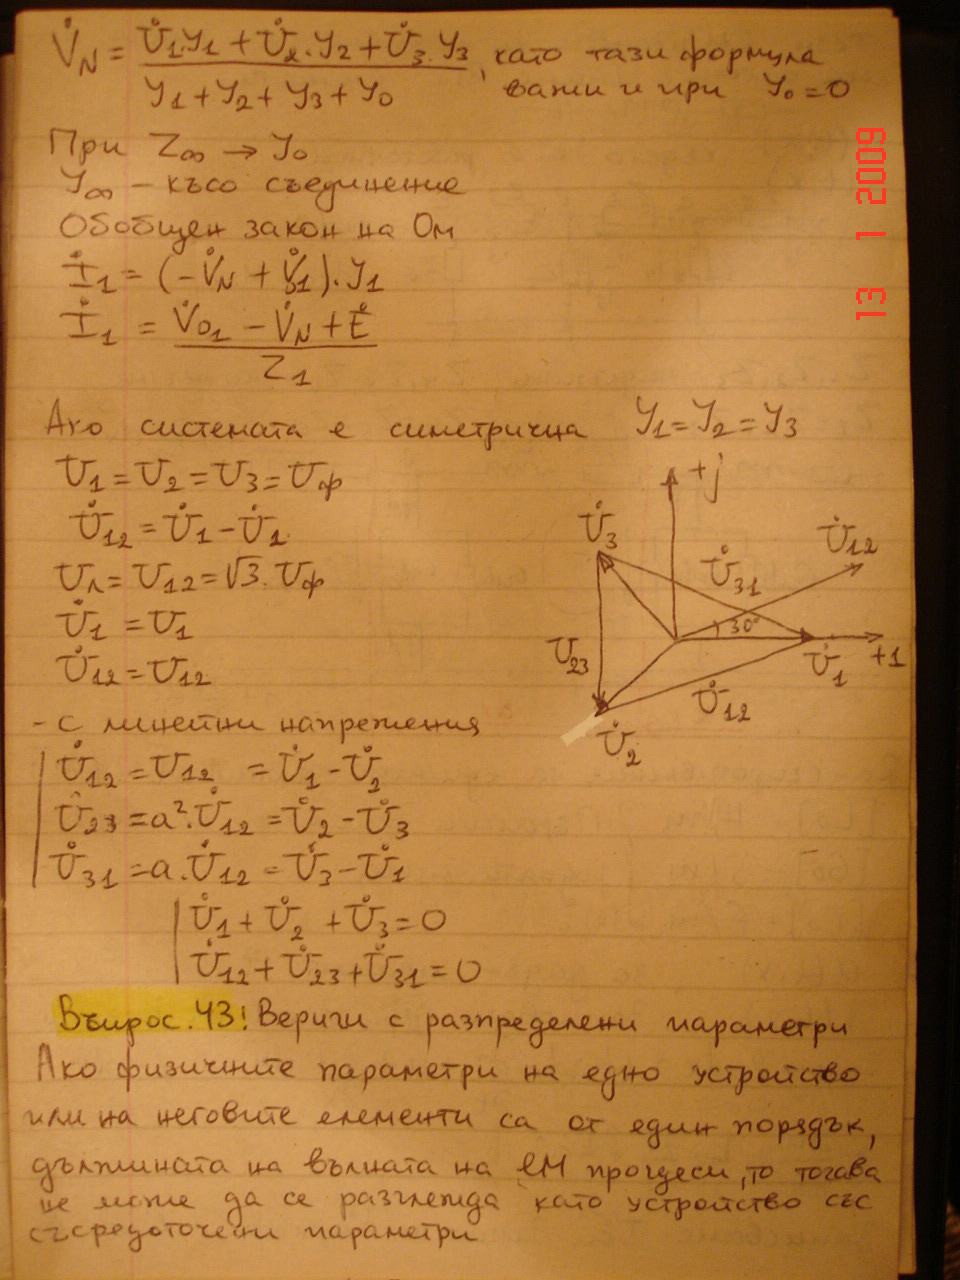 V̇N = (U̇1.Y1 + U̇2.Y2 + U̇3.Y3) / (Y1 + Y2 + Y3 + Y0), като тази формула
важи и при Y0 = 0
При Z∞ → Y0
Y∞ – късо съединение
Обобщен закон на Ом
İ1 = (-V̇N + V̇1).Y1
İ1 = (V̇01 - V̇N + Ė) / Z1
Ако системата е симетрична Y1 = Y2 = Y3
U1 = U2 = U3 = Uф
U̇12 = U̇1 - U̇1
Uл = U12 = √3 . Uф
U̇1 = U1
U̇12 = U12
+j
U̇3
U̇12
U̇31
30°
U23
U̇1
+1
U̇12
U̇2
- с линейни напрежения
U̇12 = U12 = U̇1 - U̇2
U̇23 = a².U̇12 = U̇2 - U̇3
U̇31 = a.U̇12 = U̇3 - U̇1
U̇1 + U̇2 + U̇3 = 0
U̇12 + U̇23 + U̇31 = 0
Въпрос.43! Вериги с разпределени параметри
Ако физичните параметри на едно устройство
или на неговите елементи са от един порядък,
дължината на вълната на ЕМ процеси, то тогава
не може да се разглежда като устройство със
съсредоточени параметри
13 1 2009